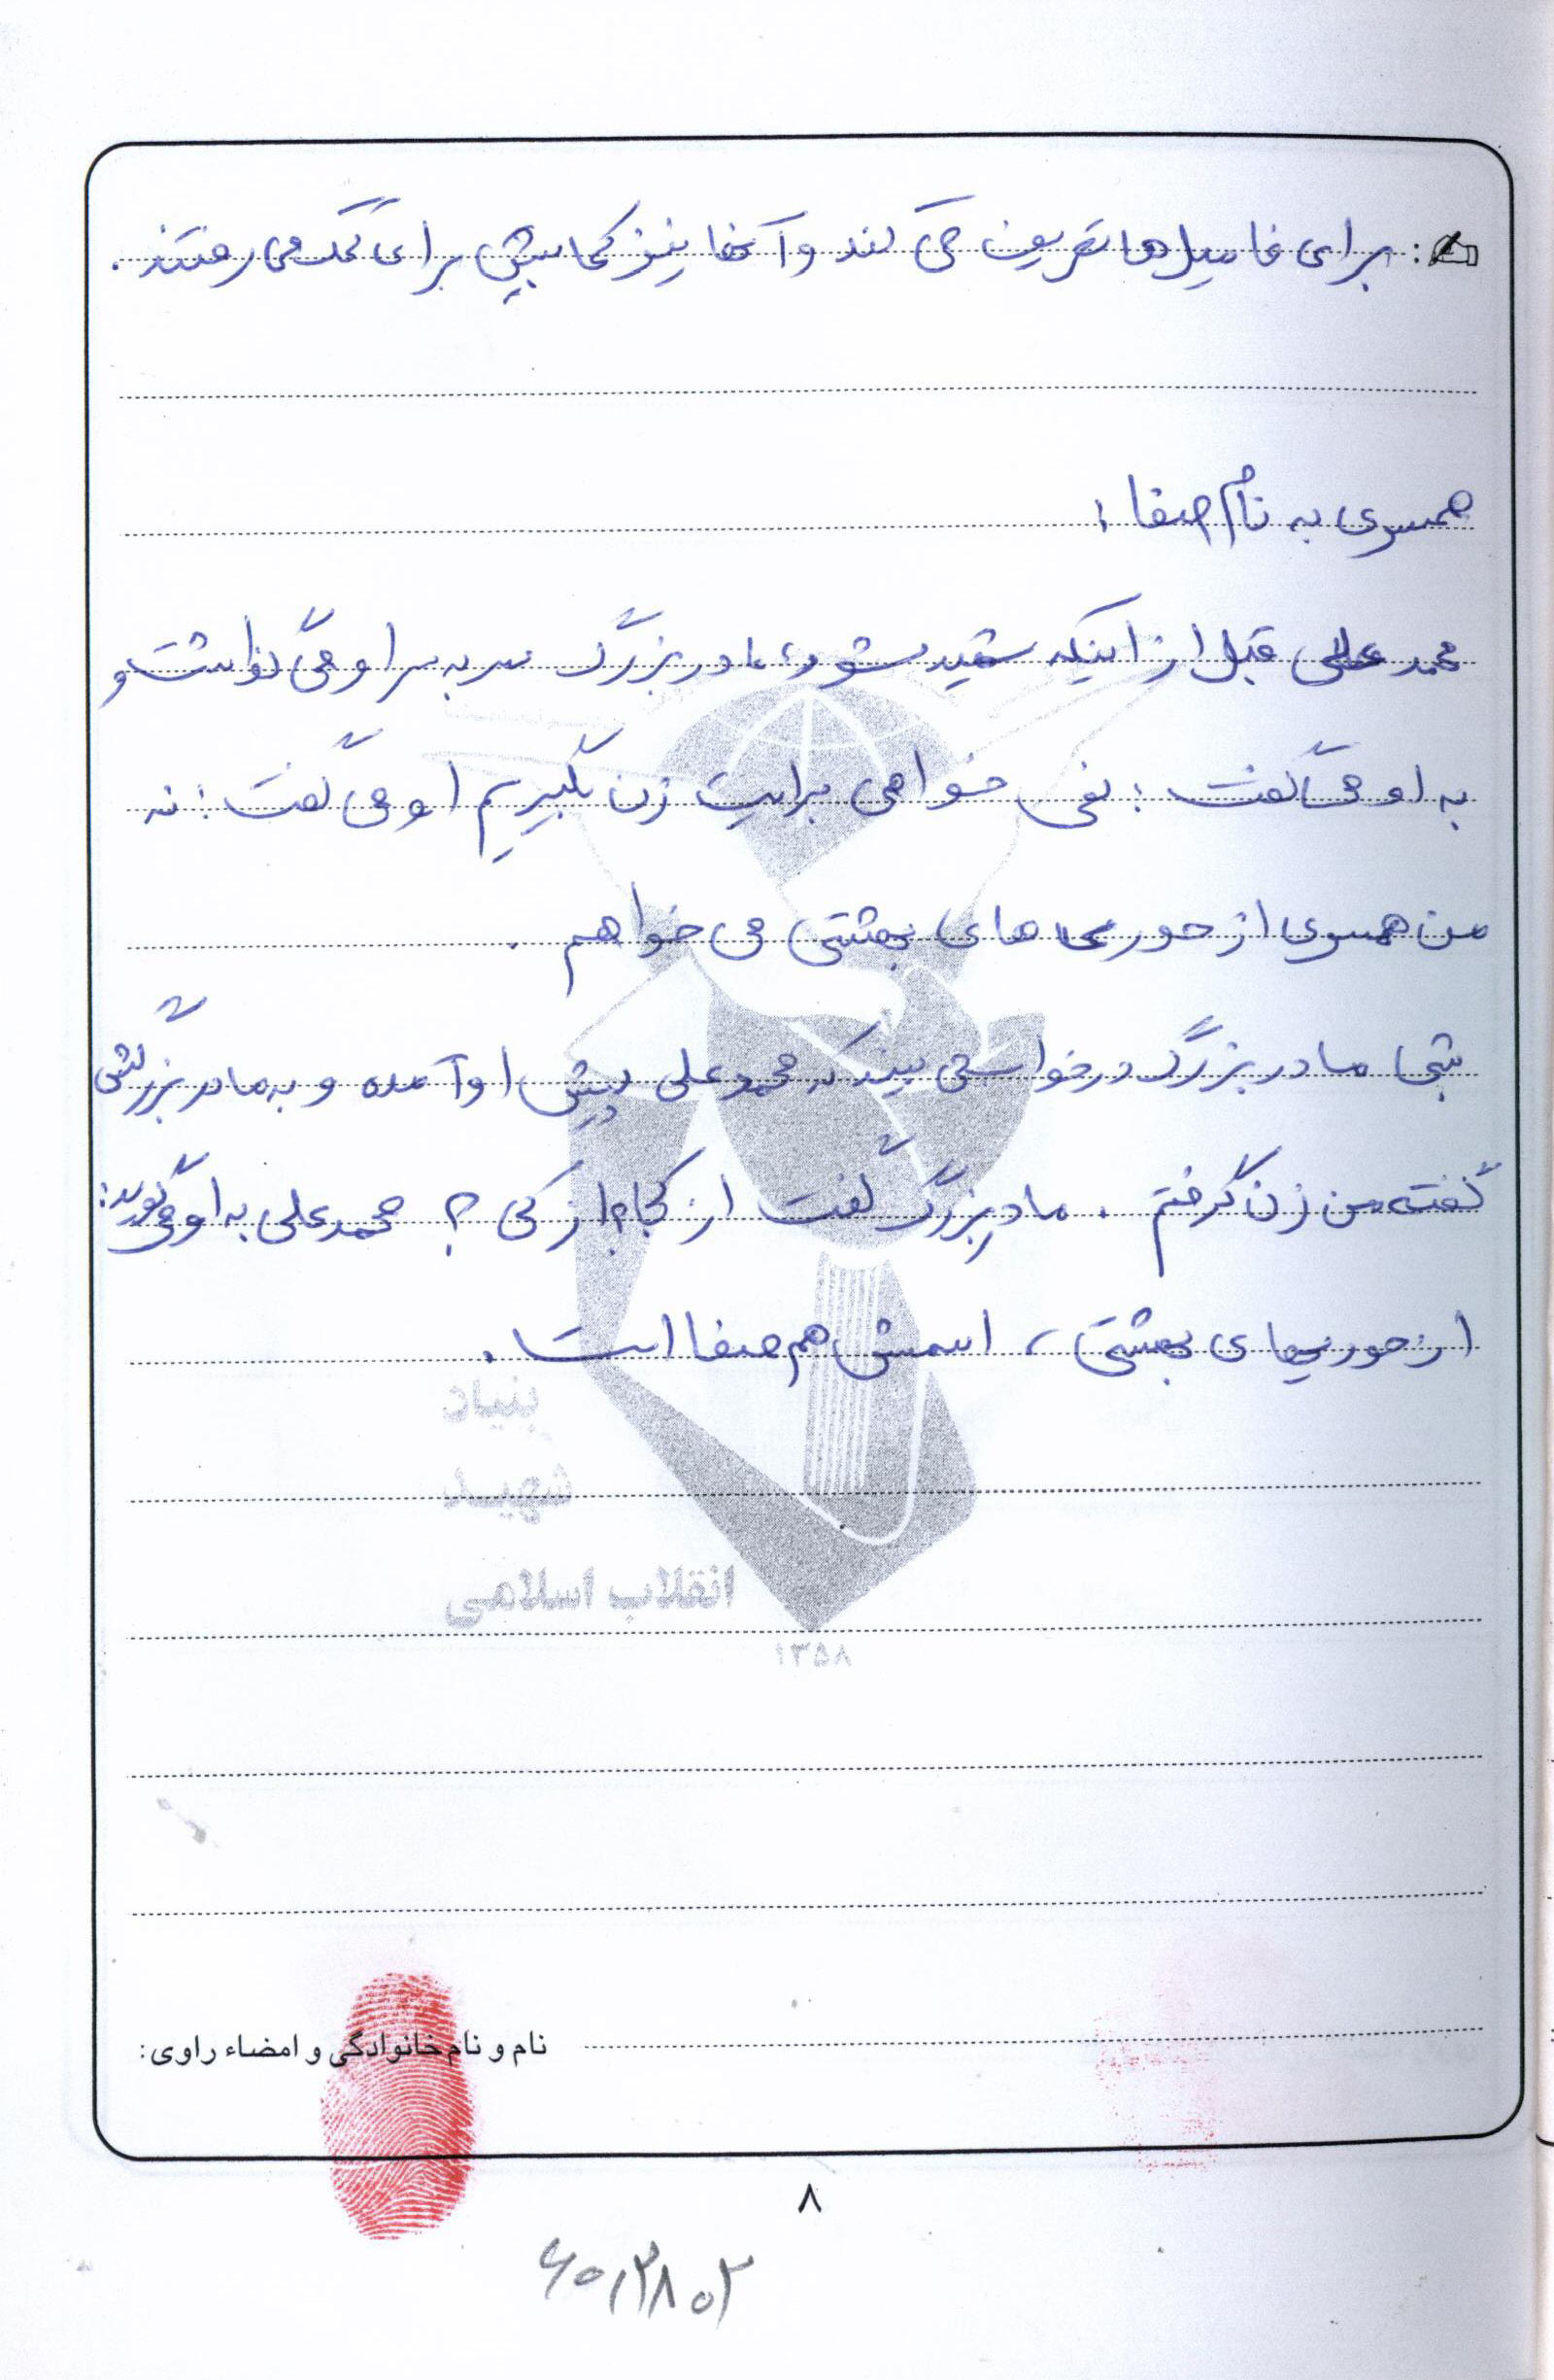 برای فامیل ها تعریف می کند و آنها نیز کمابیش برای کمک می رفتند.
همسری به نام صفا:
محمد علی قبل از اینکه شهید شود، مادر بزرگ سر به سر او می گذاشت و
به او می گفت: نمی خواهی برایت زن بگیریم او می گفت: نه
من همسری از حوری های بهشتی می خواهم.
شبی مادر بزرگ در خواب می بیند که محمد علی پیش او آمده و به مادر بزرگش
گفته من زن گرفتم. مادر بزرگ گفت از کجا؟ از کی؟ محمد علی به او می گوید:
از حوریهای بهشتی، اسمش هم صفا است.
بنیاد
شهید
انقلاب اسلامی
۱۳۵۸
نام و نام خانوادگی و امضاء راوی:
۸
۶۰۱۳۸۰۲